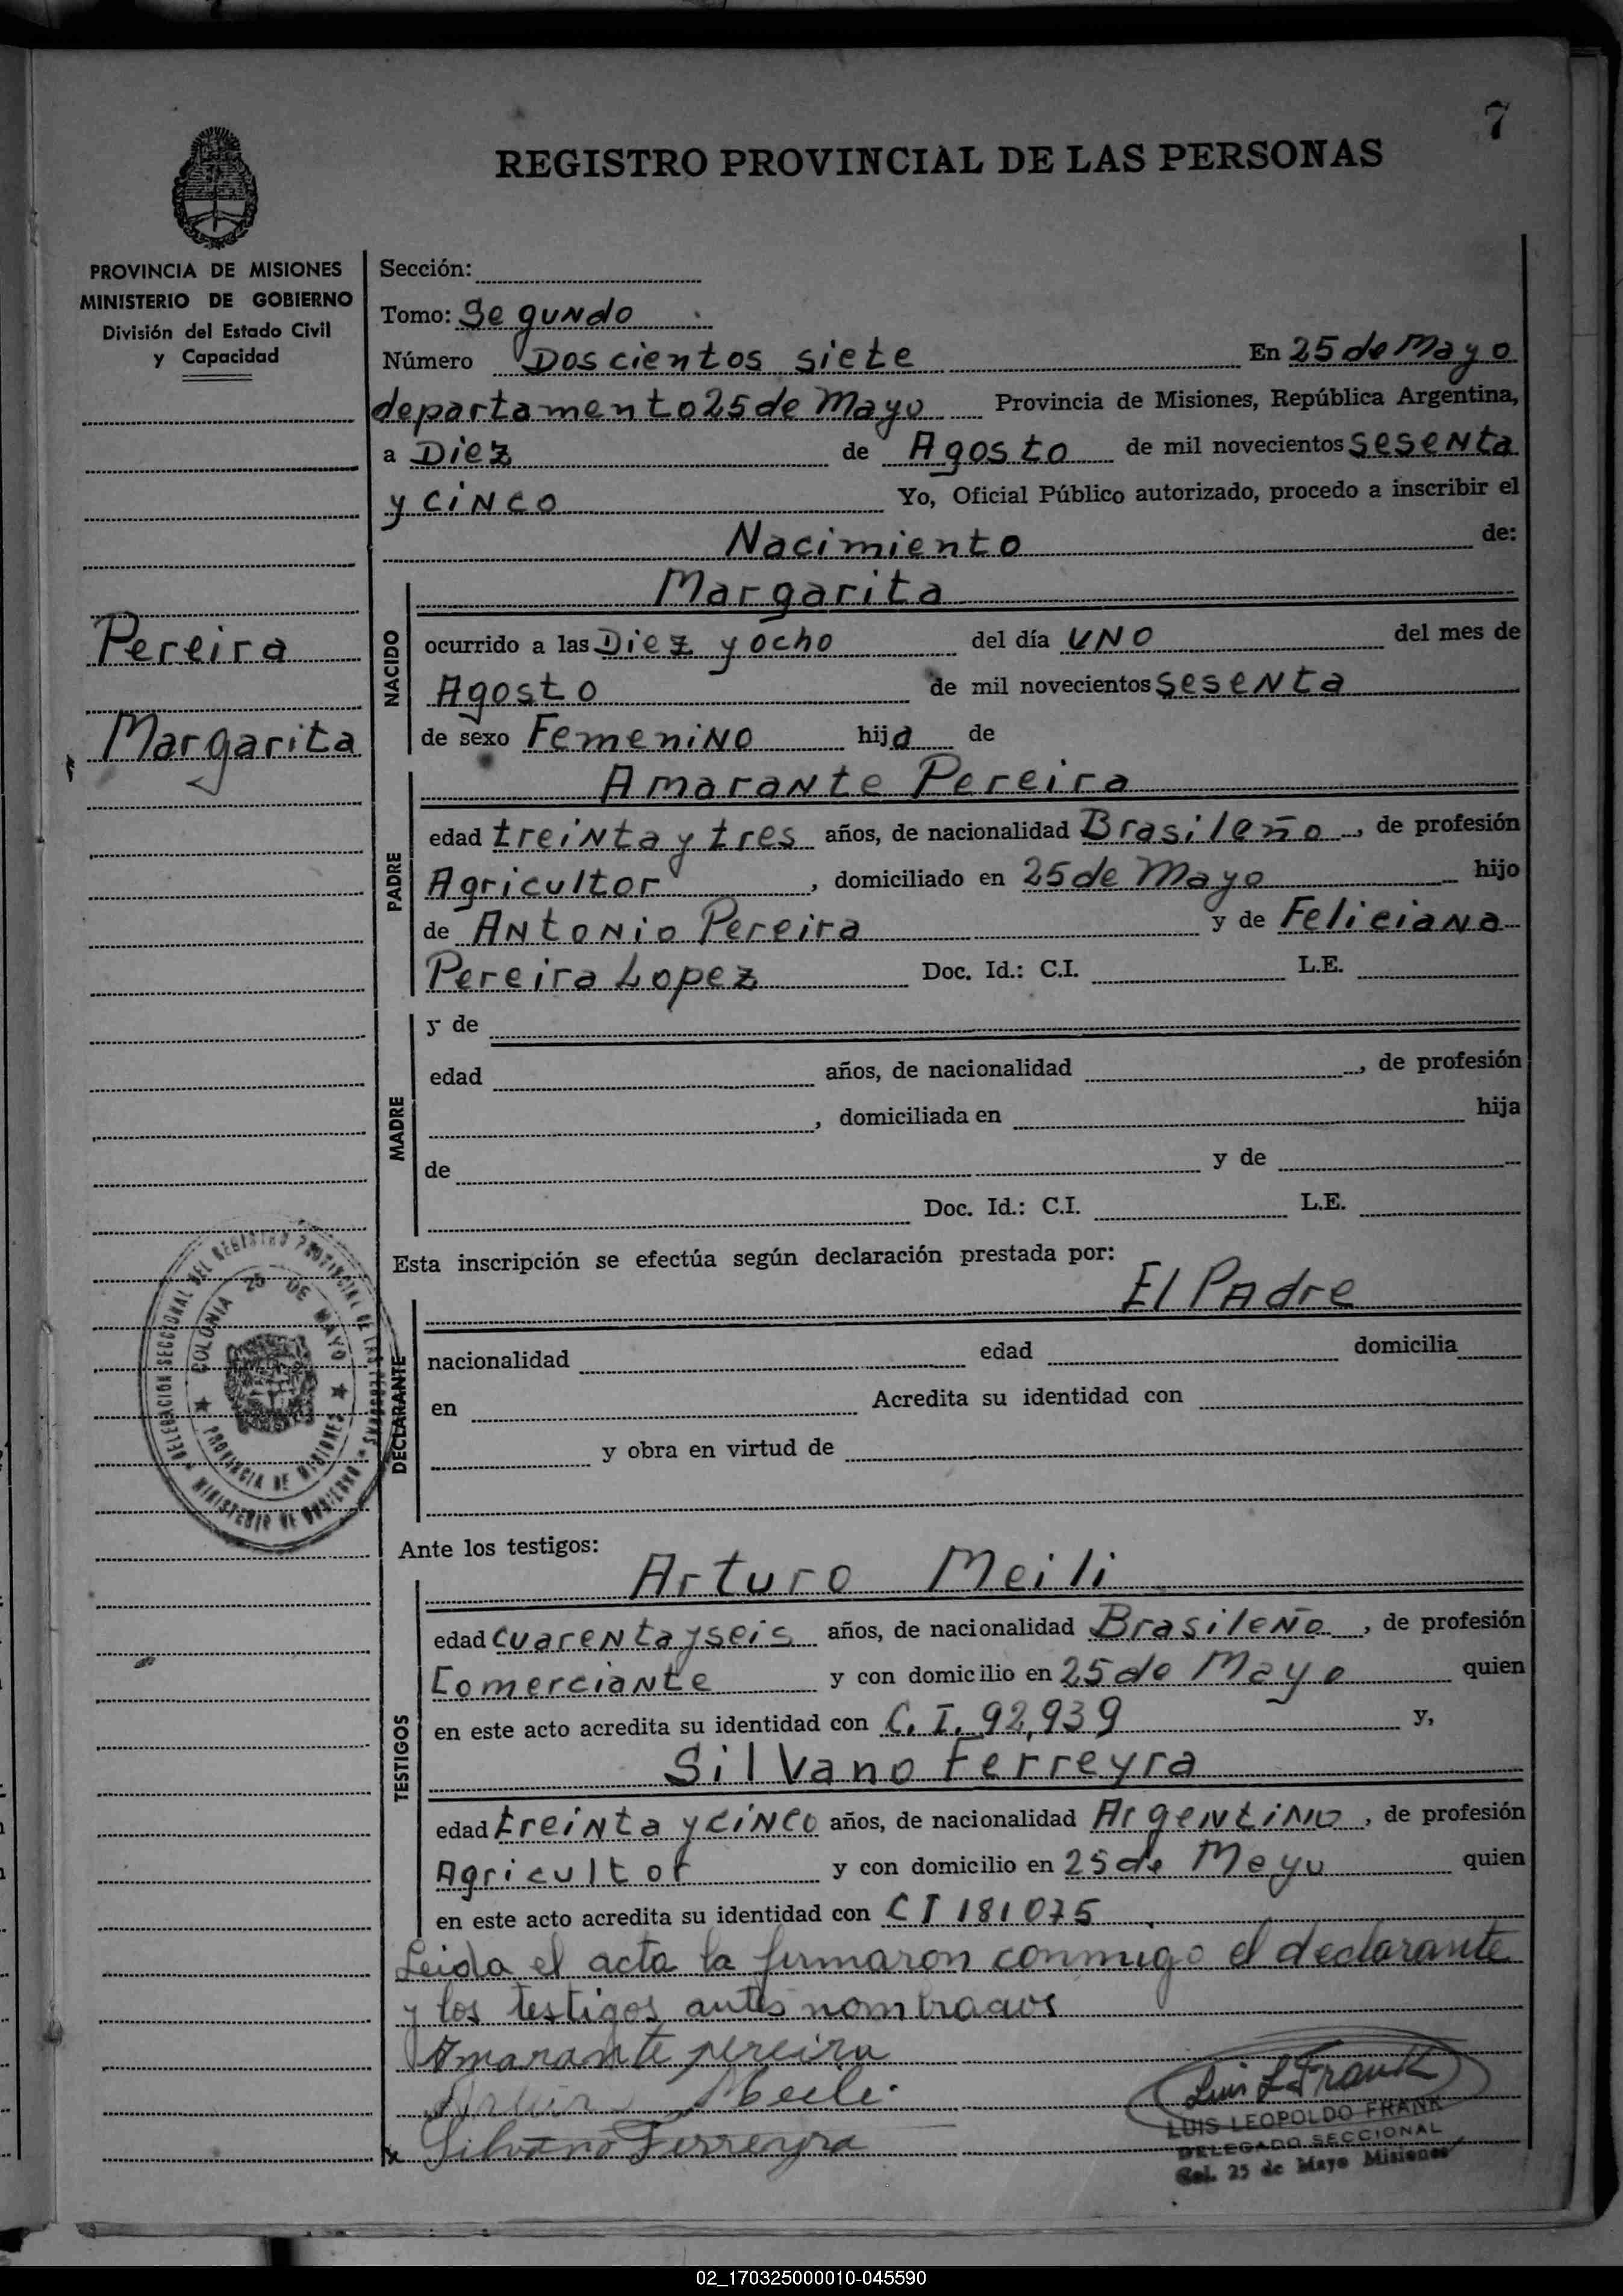 7
REGISTRO PROVINCIAL DE LAS PERSONAS
PROVINCIA DE MISIONES
MINISTERIO DE GOBIERNO
División del Estado Civil
y Capacidad
Pereira
Margarita
Sección:
Tomo: Segundo
Número Doscientos siete En 25 de Mayo
departamento 25 de Mayo Provincia de Misiones, República Argentina,
a Diez de Agosto de mil novecientos sesenta
y cinco Yo, Oficial Público autorizado, procedo a inscribir el
Nacimiento de:
NACIDO
Margarita
ocurrido a las Diez y ocho del día uno del mes de
Agosto de mil novecientos sesenta
de sexo Femenino hija de
PADRE
Amarante Pereira
edad treinta y tres años, de nacionalidad Brasileño, de profesión
Agricultor, domiciliado en 25 de Mayo hijo
de Antonio Pereira y de Feliciana
Pereira Lopez Doc. Id.: C.I. L.E.
MADRE
y de
edad años, de nacionalidad , de profesión
, domiciliada en hija
de y de
Doc. Id.: C.I. L.E.
Esta inscripción se efectúa según declaración prestada por:
DECLARANTE
El Padre
nacionalidad edad domicilia
en Acredita su identidad con
y obra en virtud de
DELEGACION SECCIONAL DEL REGISTRO PROVINCIAL DE LAS PERSONAS
MINISTERIO DE GOBIERNO
COLONIA 25 DE MAYO
PROVINCIA DE MISIONES
Ante los testigos:
TESTIGOS
Arturo Meili
edad cuarenta y seis años, de nacionalidad Brasileño, de profesión
Comerciante y con domicilio en 25 de Mayo quien
en este acto acredita su identidad con C. I. 92,939 y,
Silvano Ferreyra
edad treinta y cinco años, de nacionalidad Argentino, de profesión
Agricultor y con domicilio en 25 de Mayo quien
en este acto acredita su identidad con C I 181075
Leida el acta la firmaron conmigo el declarante
y los testigos antes nombrados
Amarante pereira
Meili
Silvano Ferreyra
Luis L Frank
LUIS LEOPOLDO FRANK
DELEGADO SECCIONAL
Col. 25 de Mayo Misiones
02_170325000010-045590